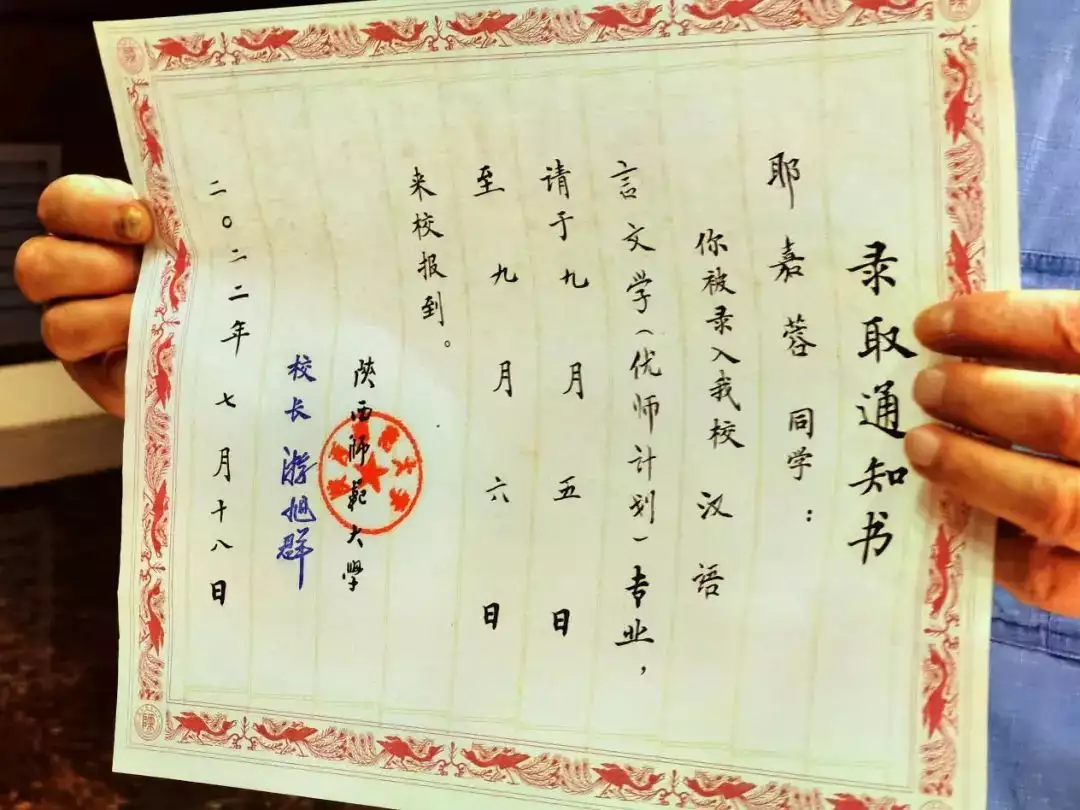 录取通知书
耶嘉蓉同学：
你被录入我校汉语
言文学（优师计划）专业，
请于九月五日
至九月六日
来校报到。
陕西师範大學
校长 游旭群
二〇二二年七月十八日